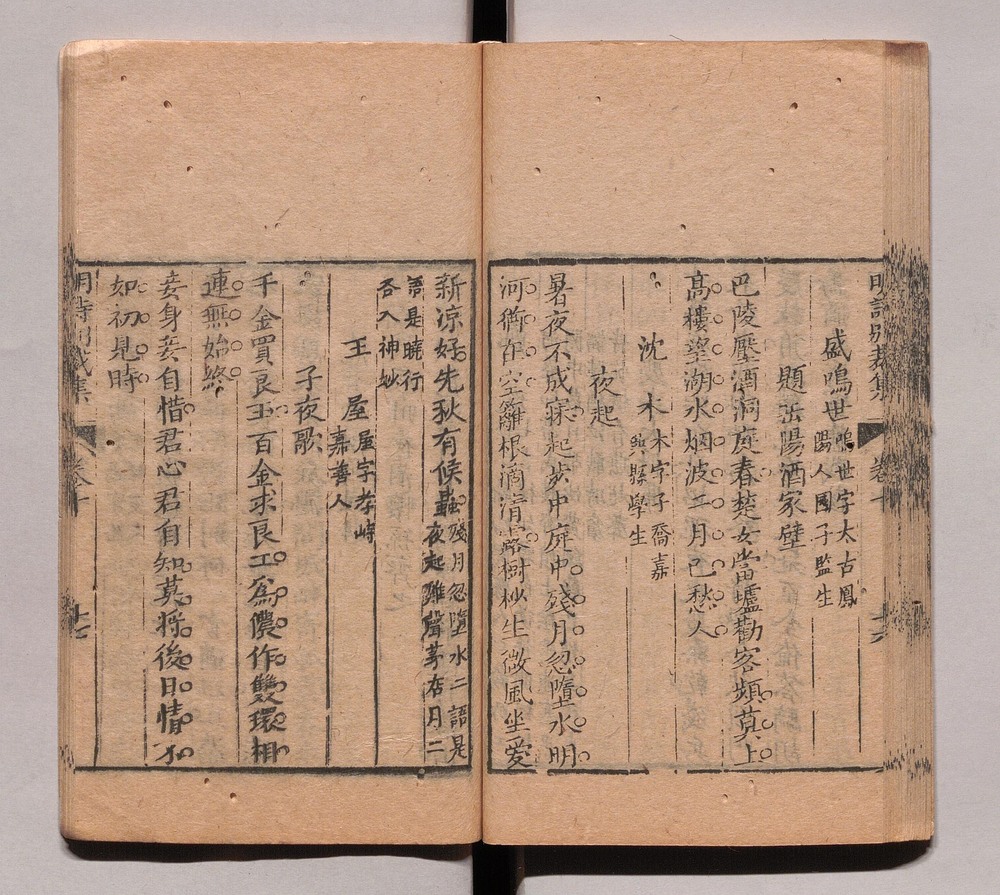 明詩別裁集 卷十
盛鳴世 鳴世字太古鳳
陽人國子監生
題岳陽酒家壁
巴陵壓酒洞庭春楚女當壚勸客頻莫上
高樓望湖水烟波二月已愁人
沈木 木字子喬嘉
興縣學生
夜起
暑夜不成寐起步中庭中殘月忽墮水明
河徜在空籬根滴清露樹杪生微風坐愛
新涼好先秋有候蟲 殘月忽墮水二語是
夜起雞聲茅店月二
語是曉行
各入神妙
王屋 屋字孝峙
嘉善人
子夜歌
千金買良玉百金求良工為儂作雙環相
連無始終
妾身妾自惜君心君自知莫將後日情不
如初見時
明詩別裁集 卷十